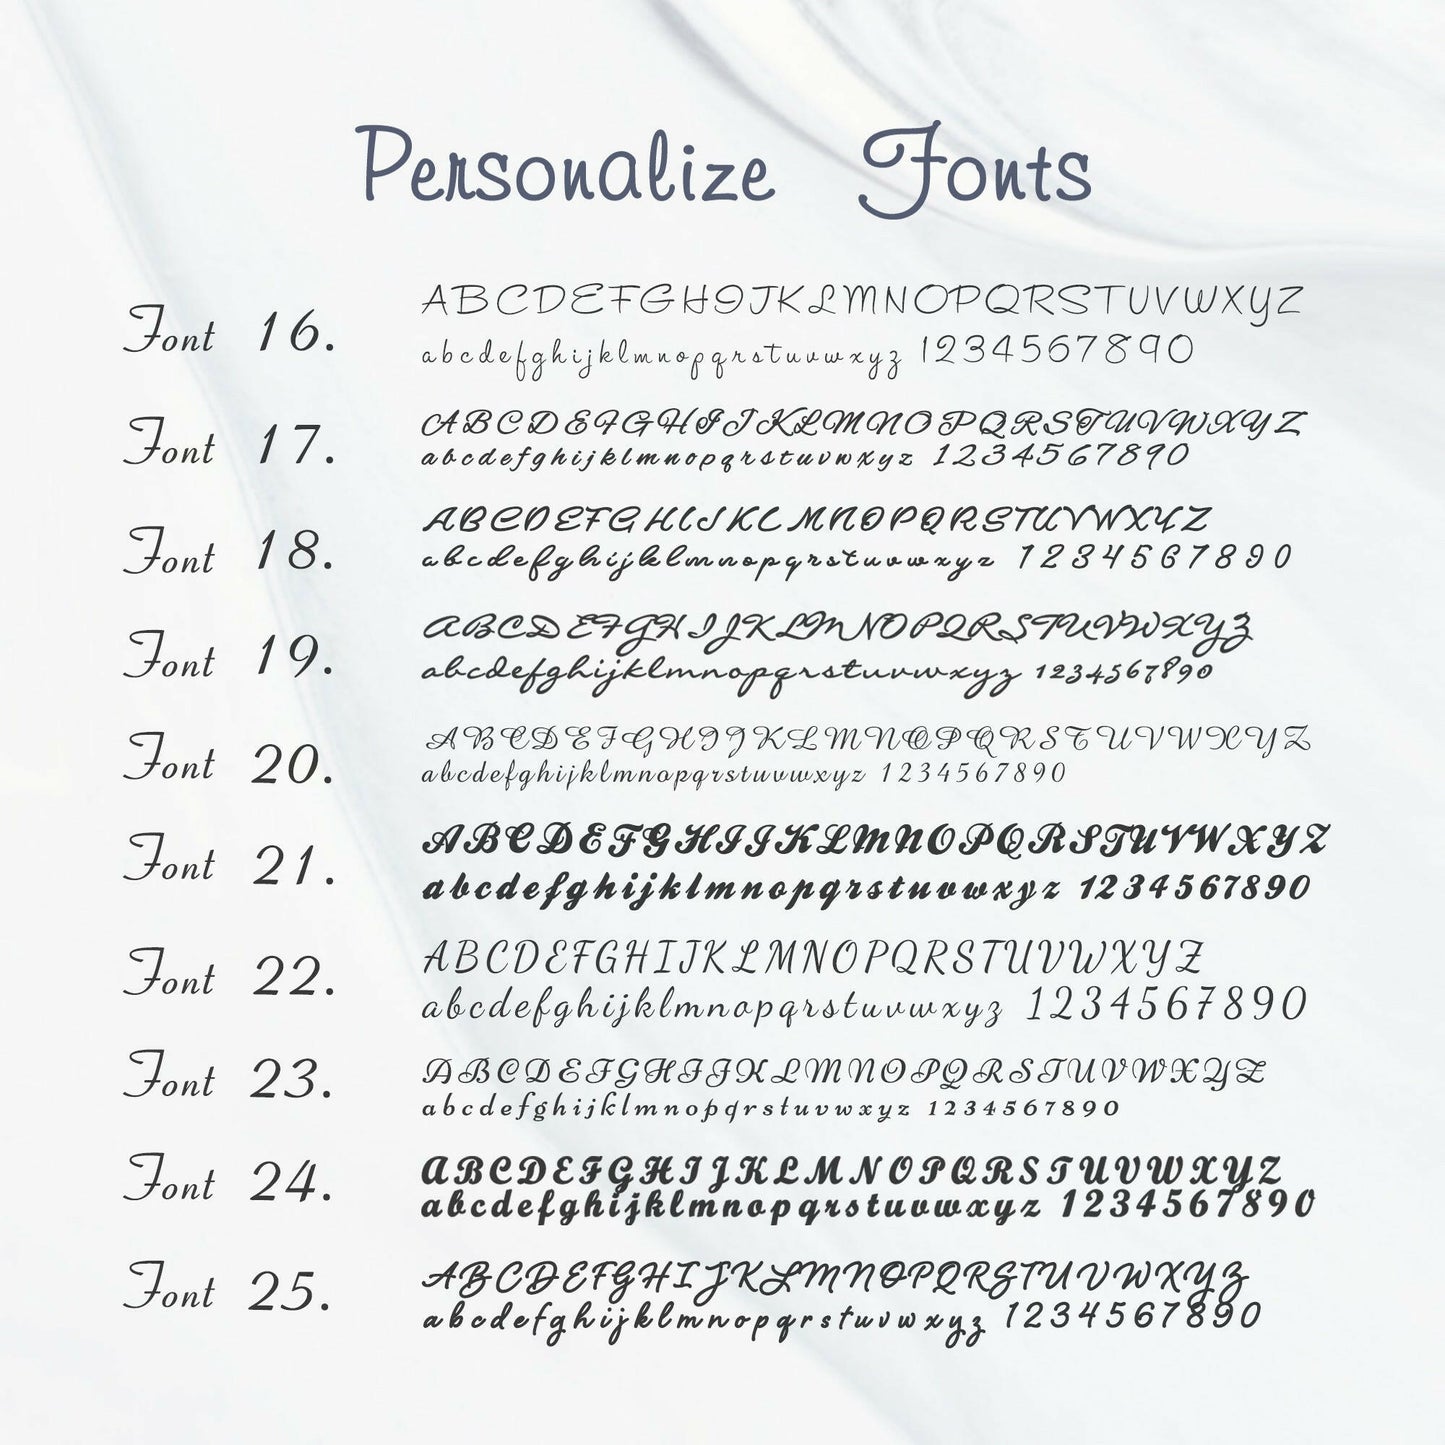 Personalize Fonts
Font 16.
ABCDEFGHIJKLMNOPQRSTUVWXYZ
abcdefghijklmnopqrstuvwxyz 1234567890
Font 17.
ABCDEFGHIJKLMNOPQRSTUVWXYZ
abcdefghijklmnopqrstuvwxyz 1234567890
Font 18.
ABCDEFGHIJKLMNOPQRSTUVWXYZ
abcdefghijklmnopqrstuvwxyz 1234567890
Font 19.
ABCDEFGHIJKLMNOPQRSTUVWXYZ
abcdefghijklmnopqrstuvwxyz 1234567890
Font 20.
ABCDEFGHIJKLMNOPQRSTUVWXYZ
abcdefghijklmnopqrstuvwxyz 1234567890
Font 21.
ABCDEFGHIJKLMNOPQRSTUVWXYZ
abcdefghijklmnopqrstuvwxyz 1234567890
Font 22.
ABCDEFGHIJKLMNOPQRSTUVWXYZ
abcdefghijklmnopqrstuvwxyz 1234567890
Font 23.
ABCDEFGHIJKLMNOPQRSTUVWXYZ
abcdefghijklmnopqrstuvwxyz 1234567890
Font 24.
ABCDEFGHIJKLMNOPQRSTUVWXYZ
abcdefghijklmnopqrstuvwxyz 1234567890
Font 25.
ABCDEFGHIJKLMNOPQRSTUVWXYZ
abcdefghijklmnopqrstuvwxyz 1234567890